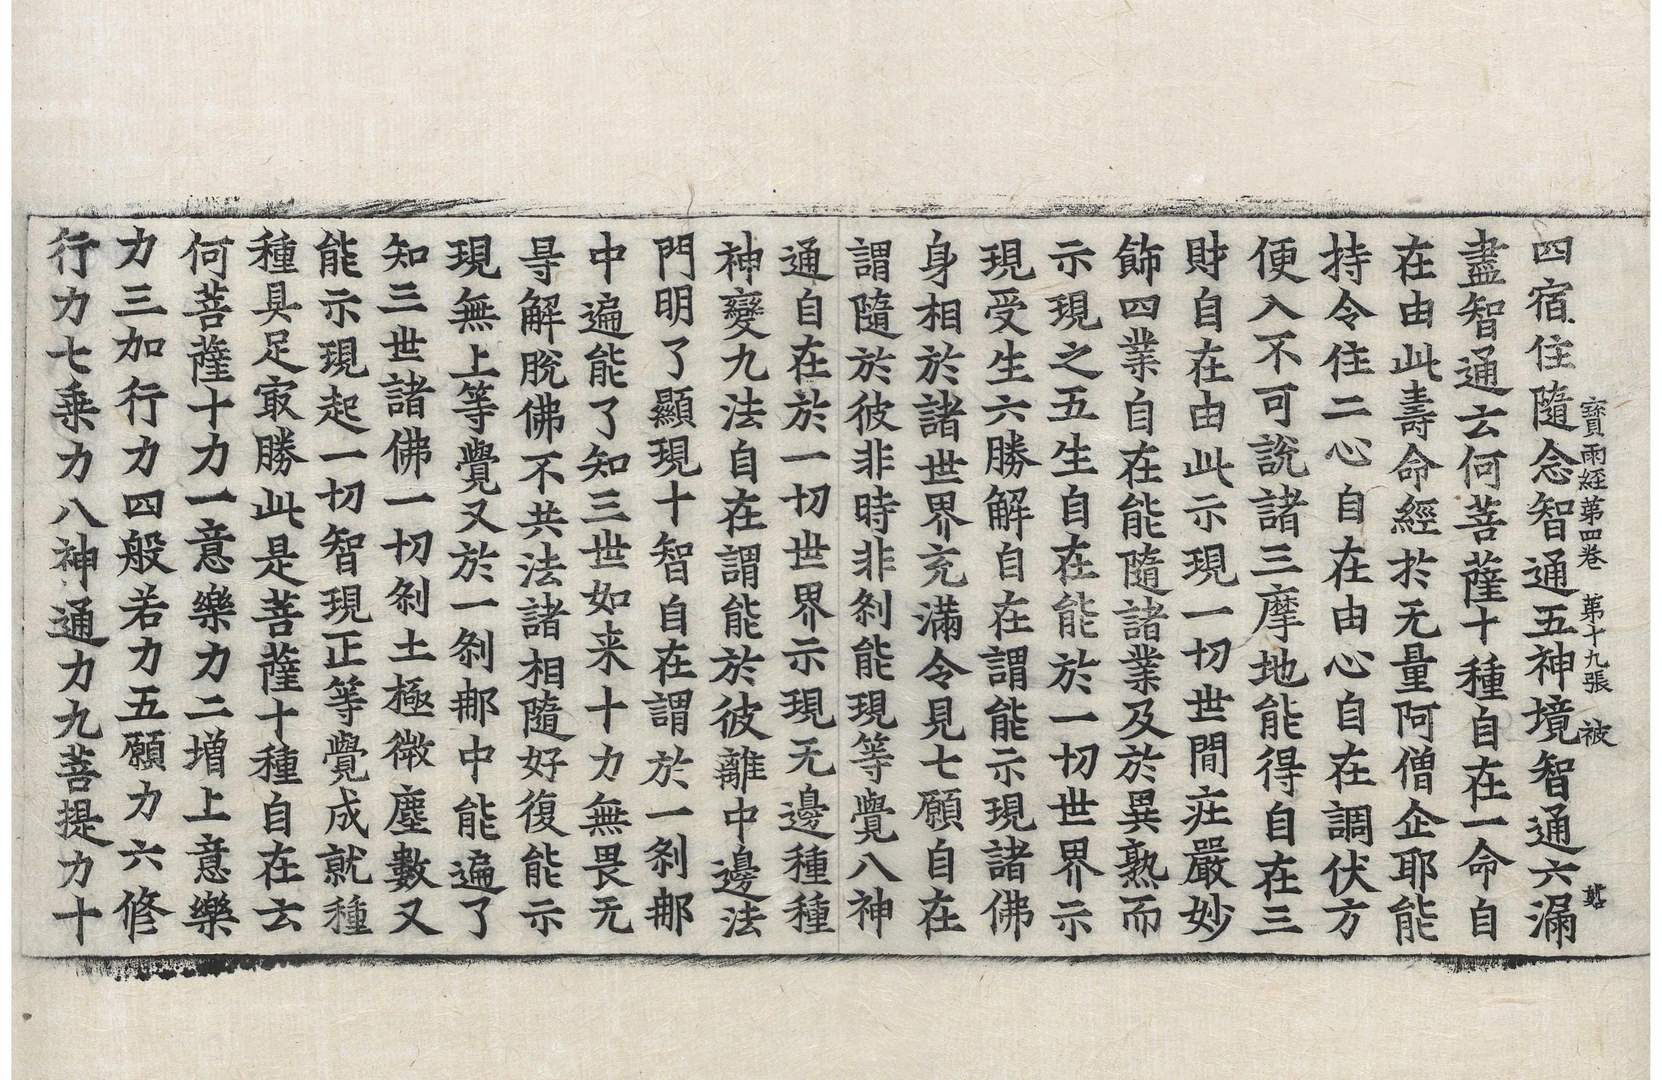 寶雨經第四卷 第十九張 被
四宿住隨念智通五神境智通六漏
盡智通云何菩薩十種自在一命自
在由此壽命經於无量阿僧企耶能
持令住二心自在由心自在調伏方
便入不可說諸三摩地能得自在三
財自在由此示現一切世間疘嚴妙
飾四業自在能隨諸業及於異熟而
示現之五生自在能於一切世界示
現受生六勝解自在謂能示現諸佛
身相於諸世界充滿令見七願自在
謂隨於彼非時非剎能現等覺八神
通自在於一切世界示現无邊種種
神變九法自在謂能於彼離中邊法
門明了顯現十智自在謂於一剎那
中遍能了知三世如来十力無畏无
㝵解脫佛不共法諸相隨好復能示
現無上等覺又於一剎那中能遍了
知三世諸佛一切剎土極微塵數又
能示現起一切智現正等覺成就種
種具足㝡勝此是菩薩十種自在云
何菩薩十力一意樂力二增上意樂
力三加行力四般若力五願力六修
行力七乗力八神通力九菩提力十